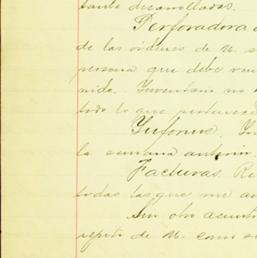 tante desarrolladas.
Perforadora
de las órdenes de U.
persona que debe
nido. Inventam no
todo lo que pertenece
Informes.
la semana anterior.
Facturas. Re
todas las que me
Sin otro
repito de U. como